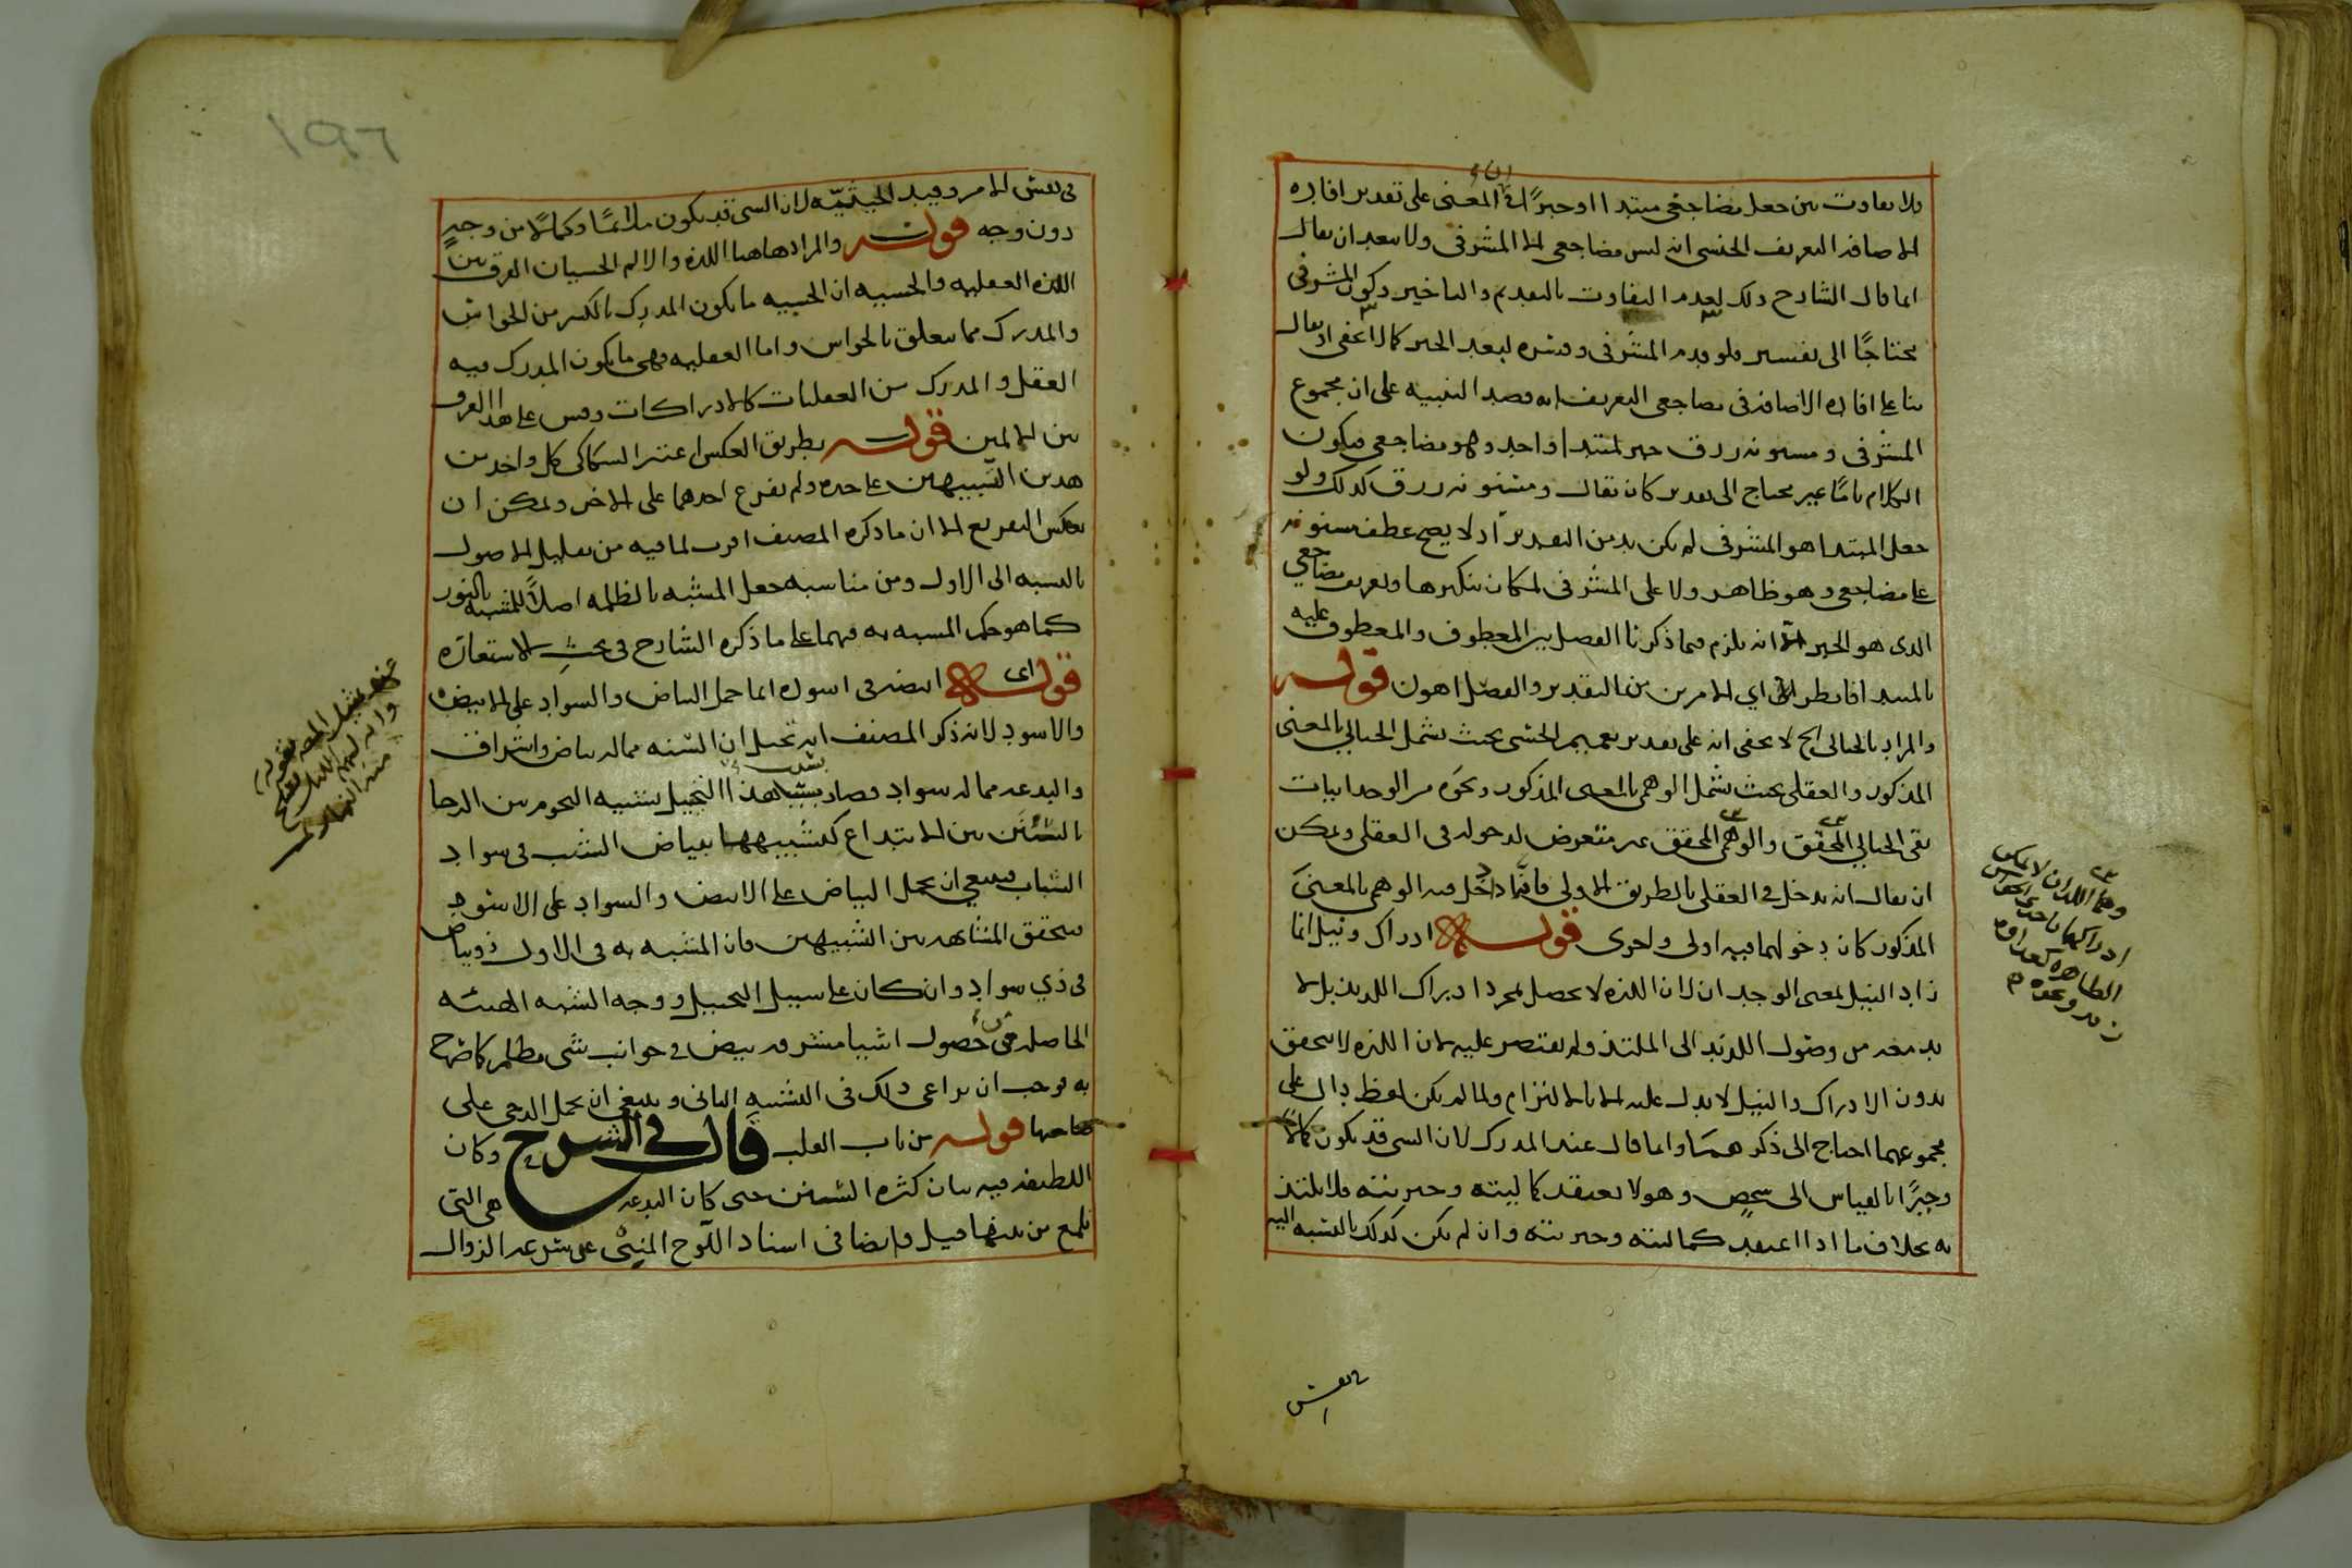 فلا تفاوت بين جعل مضاجعي مبتدا او خبرًا اذ المعنى على تقدير افاده
الاضافه التعريف الجنسى انه ليس مضاجعي الا المشرفى ولا يبعد ان يقال
انما قال الشارح ذلك لعدم التفاوت بالتقديم والتاخير وكون المشرفى
محتاجًا الى تفسير فلو قدم المشرفى وفسره لبعد الخبر كما لا يخفى او يقال
بنا على افاده الاضافه فى مضاجعى التعريف انه قصد التنبيه على ان مجموع
المشرفى ومسنونه زرق خبر لمبتدا واحد وهو مضاجعى فيكون
الكلام تامًا غير محتاج الى تقدير كان يقال ومسنونه زرق كذلك ولو
جعل المبتدا هو المشرفى لم يكن بد من التقدير اذ لا يصح عطف مسنونه
على مضاجعى وهو ظاهر ولا على المشرفى لمكان تنكيرها وتعريف مضاجعي
الذى هو الخبر انه يلزم فيما ذكرنا الفصل بين المعطوف والمعطوف عليه
بالمبتدا فانظر اي الامرين من التقدير والفصل اهون قوله
والمراد بالخيالى الخ لا يخفى انه على تقدير تعميم الحسى بحيث يشمل الخيالي بالمعنى
المذكور والعقلى بحيث يشمل الوهمى بالمعنى المذكور ونحوه من الوجدانيات
بقى الخيالي المحقق والوهمى المحقق غير متعرض لدخوله فى العقلى ويمكن
ان يقال انه يدخل في العقلى بالطريق الاولى فانه اذا دخل فيه الوهمى بالمعنى
المذكور كان دخولهما فيه اولى واحرى قوله ادراك ونيل انما
زاد النيل لمعنى الوجدان لان اللذه لا يحصل بمجرد ادراك اللذيذ بل لا
بد معه من وصول اللذيذ الى الملتذ ولم يقتصر عليه لان اللذه لا يتحقق
بدون الادراك والنيل لا يدل عليه الا بالالتزام ولما لم يكن لفظ دال على
مجموعهما احتاج الى ذكرهما وانما قال عند المدرك لان الشى قد يكون كمالًا
وخيرًا بالقياس الى شخص وهو لا يعتقد كماليته وخيريته فلا يلتذ
به بخلاف ما اذا اعتقد كماليته وخيريته وان لم يكن كذلك بالنسبه اليه
وهما اللذان لا يمكن
ادراكهما باحدى الحواس
الظاهره
فى نفس الامر وقيد الحيثيّه لان الشى قد يكون ملائمًا وكمالًا من وجهٍ
دون وجه قوله والمراد هاهنا اللذه والالم الحسيان الفرق بين
اللذه العقليه والحسيه ان الحسيه ما يكون المدرك بالكسر من الحواس
والمدرك مما يتعلق بالحواس واما العقليه فهى ما يكون المدرك فيه
العقل والمدرك من العقليات كالادراكات وقس على هذا الفرق
بين الالمين قوله بطريق العكس اعتبر السكاكى كل واحد من
هذين التشبيهين على حده ولم يفرع احدهما على الاخر ويمكن ان
يعكس التفريع الا ان ما ذكره المصنف اقرب لما فيه من تقليل الاصول
بالنسبه الى الاول ومن مناسبه جعل المشبه بالظلمه اصلًا للمشبه بالنور
كما هو حكم المشبه به فيهما على ما ذكره الشارح فى بحث الاستعاره
قوله اى ابيضه فى اسوده انما حمل البياض والسواد على الابيض
والاسود لانه ذكر المصنف انه تخيل ان السنه مما له بياض واشراق
والبدعه مما له سواد فصار بسبب هذا التخييل تشبيه النجوم بين الدجا
بالسنن بين الابتداع كتشبيهها ببياض الشيب فى سواد
الشباب فينبغي ان يحمل البياض على الابيض والسواد على الاسود
ليتحقق المشابهه بين التشبيهين فان المشبه به فى الاول ذو بياض
فى ذي سواد وان كان على سبيل التخييل ووجه الشبه الهيئه
الحاصله من حصول اشيا مشرقه بيض في جوانب شى مظلم كما صرح
به فوجب ان يراعى ذلك فى التشبيه الثانى وينبغى ان يحمل الدجى على
قوله من باب القلب قال في الشرح وكان
اللطيفه فيه بيان كثره السنن حتى كان البدعه هى التى
تلمع من بينها قيل وايضا فى اسناد اللوح المنبئ عن سرعه الزوال
١٩٦